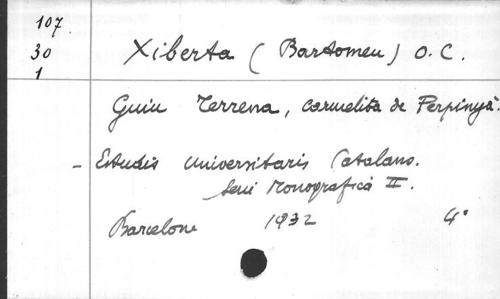 107
30
1
Xiberta (Bartomeu) O.C.
Guiu Terrena, carmelita de Perpinyà.
- Estudis Universitaris Catalans.
Seri Monografica II.
Barcelone 1932 4°